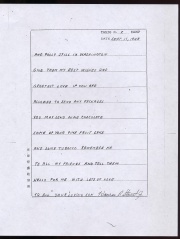 DATE SEPT 11, 1968
ARE REALLY STILL IN
GIVE THEM MY BEST WISHES AND
GREATEST LOVE IF YOU ARE
ALLOWED TO SEND ANY PACKAGES
YOU MAY SEND SOME CHOCOLATE
SOME OF YOUR FINE FRUIT CAKE
AND SOME TOBACCO REMEMBER ME
TO ALL MY FRIENDS AND TELL THEM
HELLO FOR ME WITH LOTS OF LOVE
TO ALL YOUR LOVING SON